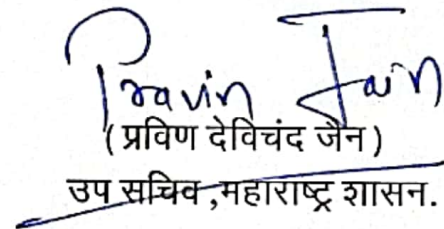 Pravin Jain
( प्रविण देविचंद जैन )
उप सचिव ,महाराष्ट्र शासन.